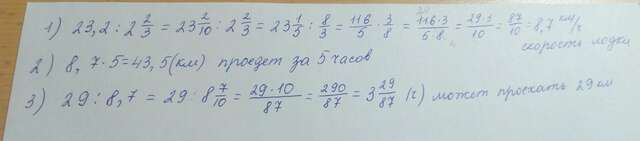 1) 23,2 : 2 2/3 = 23 2/10 : 2 2/3 = 23 1/5 : 8/3 = 116/5 · 3/8 = 116·3/5·8 = 29·3/10 = 87/10 = 8,7 км/ч
скорость лодки
2) 8,7·5=43,5(км) проедет за 5 часов
3) 29 : 8,7 = 29 : 8 7/10 = 29·10/87 = 290/87 = 3 29/87 (ч) может проехать 29 км